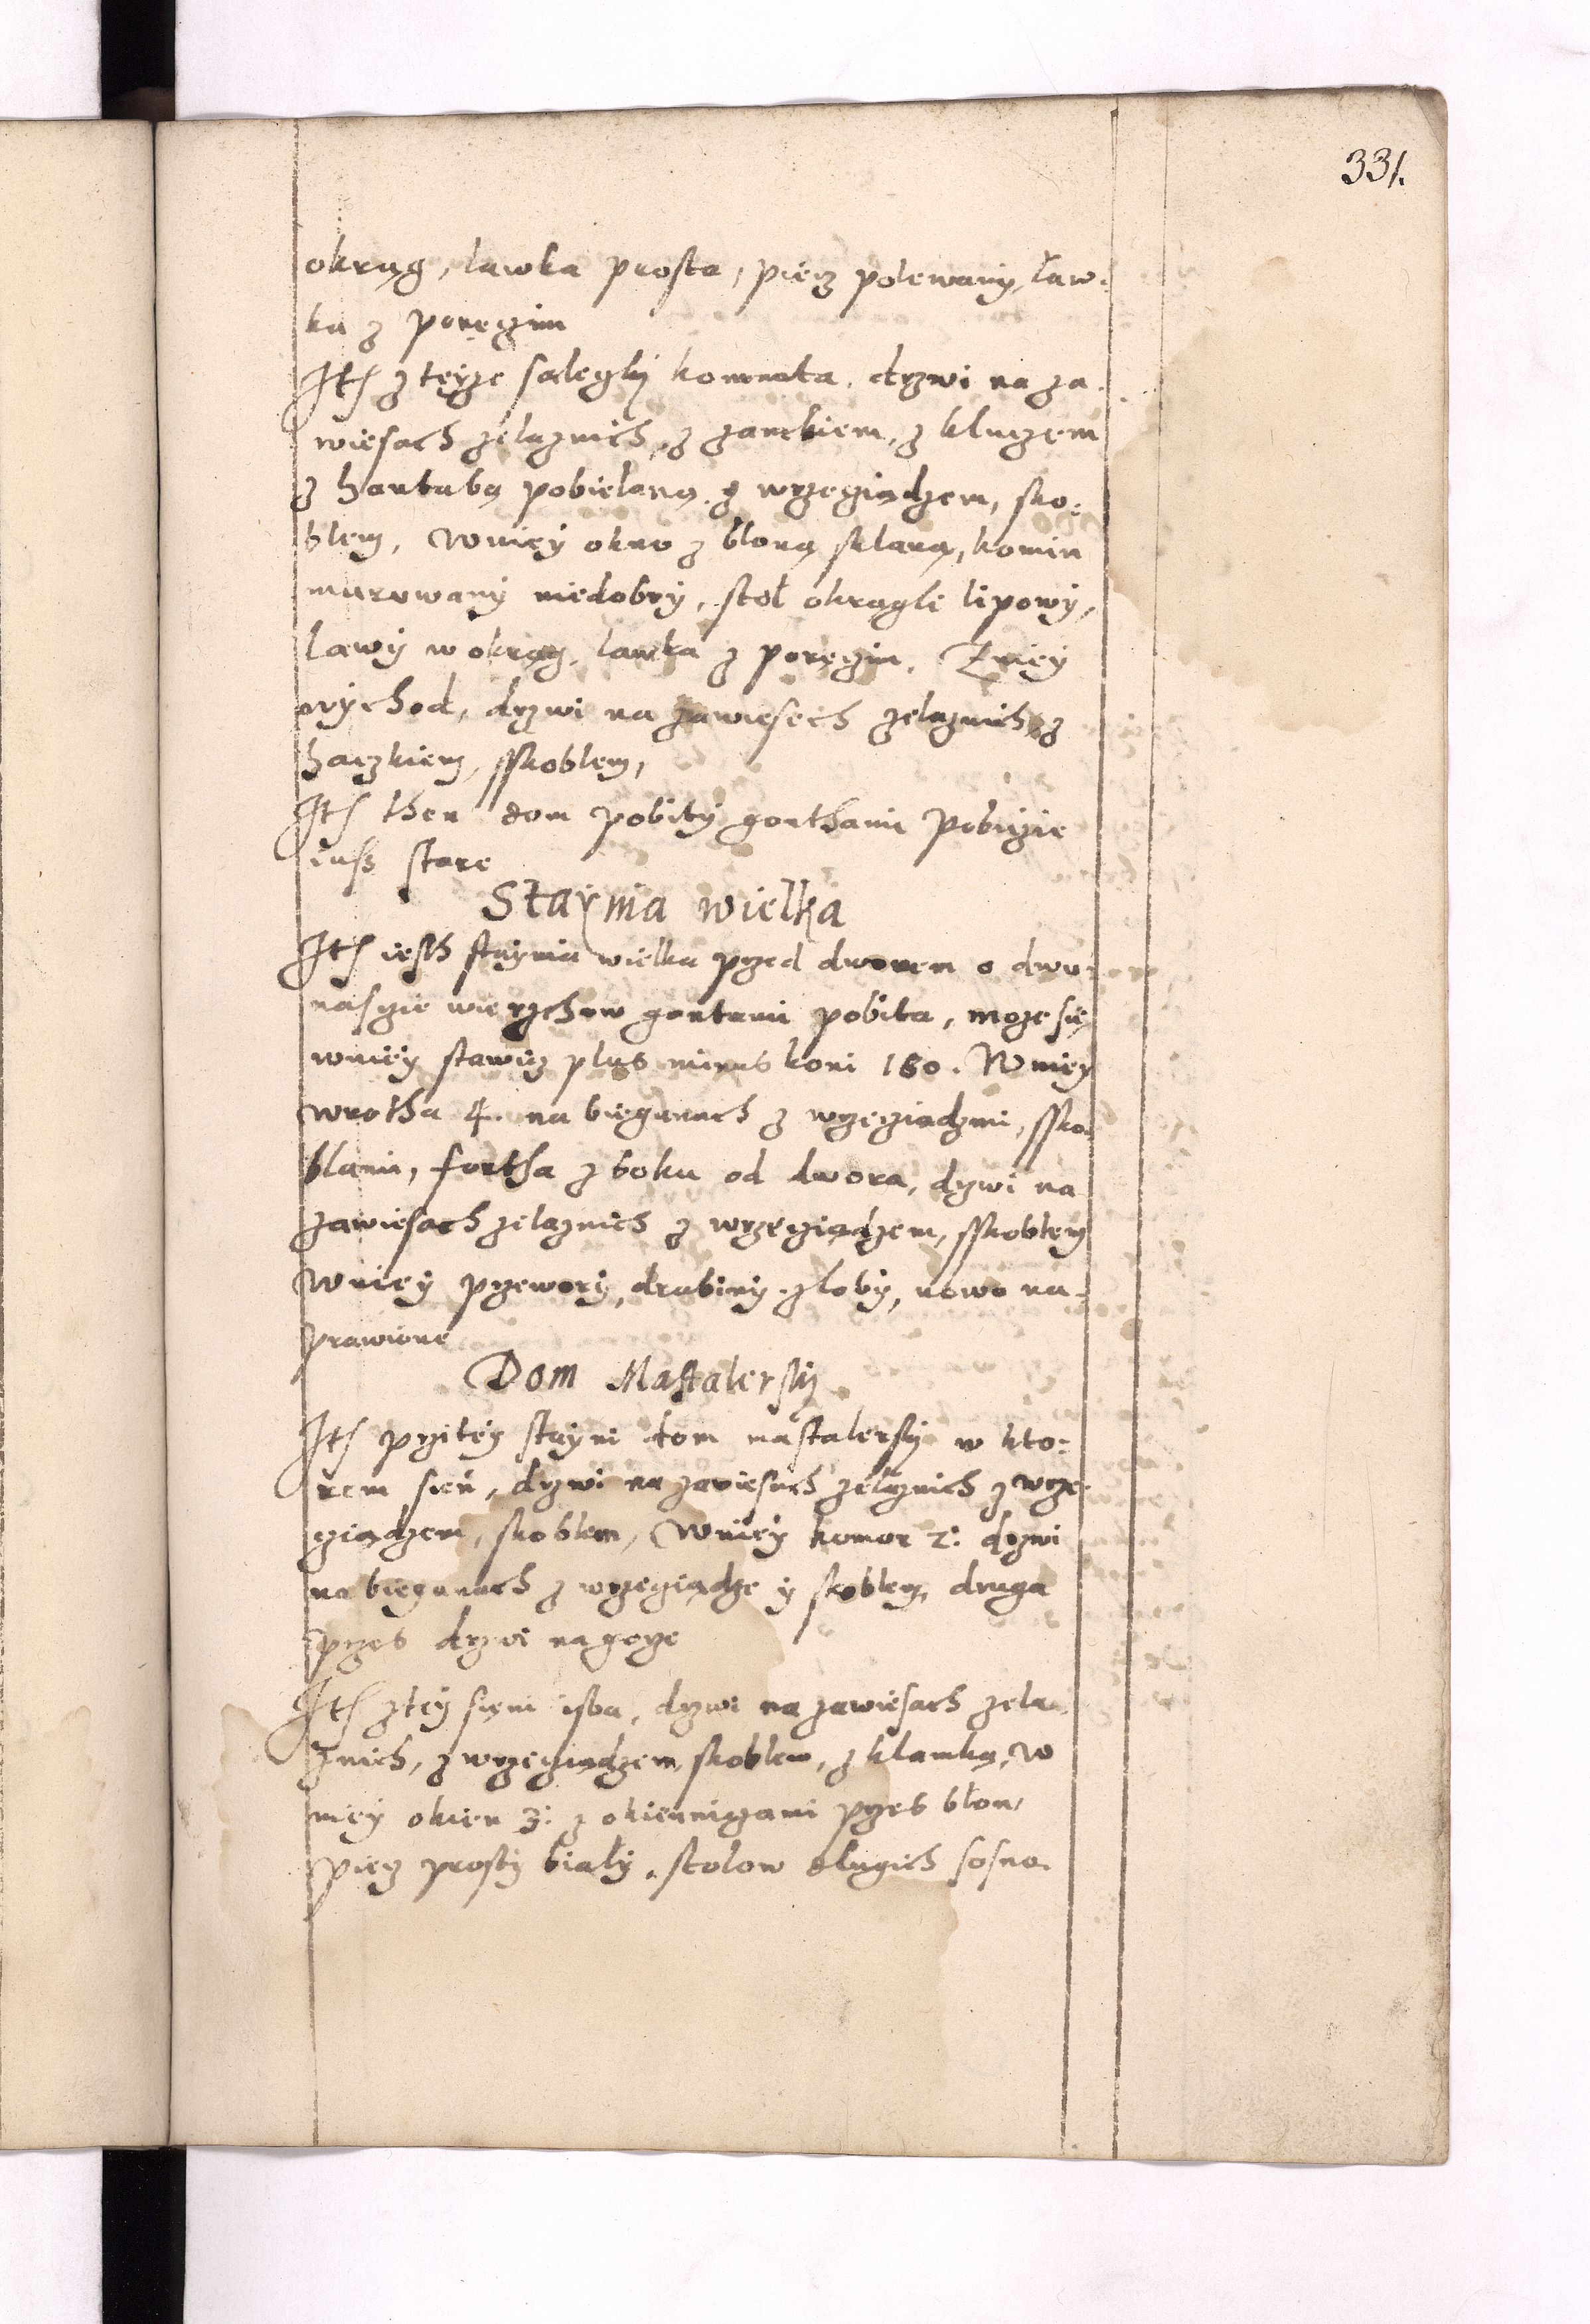 331.
okrąg, lawka prosta, piecz polewany, ław:
ka z poręczim
Ité z teyze salegly komnata. drzwi na za:
wiesach zelaznich, z zamkiem, z kluczem
z hantabą pobielaną. z wrzecziadzem, sko:
blem, Wniey okno z bloną sklaną, komin
murowany niedobry, stoł okragle lipowy,
lawy w okrąg, lawka z poręczim. Zniey
wychod, drzwi na zawiesech zelaznich, z
haczkiem, sskoblem,
Ité then dom pobity gonthami pobiczie
iusz stare
Staynia wielka
Ité iesth staynia wielka przed dworem o dwu:
nasczie wierzchow gontami pobita, moze się
wniey stawicz plus minus koni 180. Wniey
wrotha 4. na biegunach z wrzecziadzmi, ssko:
blami, fortha z boku od dwora, drzwi na
zawiesach zelaznich z wrzecziadzem, sskoblem
Wniey przewory, drabiny zloby, nowo na:
prawione
Dom Mastalersky
Ité przitey stayni dom mastalersky w kto:
rem sień, drzwi na zawiesach zelaznich z wrze:
cziadzem, skoblem, Wniey komor 2: drzwi
na biegunach z wrzecziadze y skoblem, druga
przes drzwi na gorze
Ité ztey sieni isba, drzwi na zawiesach zela:
znich, z wrzecziadzem skoblem, z klamką, w
niey okien 3: z okienniczami przes blon,
piecz prosty biały. stolow dlugich sosno: